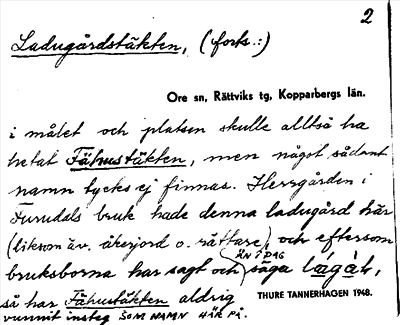 2
Ladugårdstäkten, (forts.:)
Ore sn, Rättviks tg, Kopparbergs län.
i målet och platsen skulle alltså ha
hetat Fähustäkten, men något sådant
namn tycks ej finnas. Herrgården i
Furudals bruk hade denna ladugård här
(liksom äv. åkerjord o. rättare), och eftersom
bruksborna har sagt och ÄN I DAG säga
så har Fähustäkten aldrig
THURE TANNERHAGEN 1948.
vunnit insteg SOM NAMN HÄR PÅ.